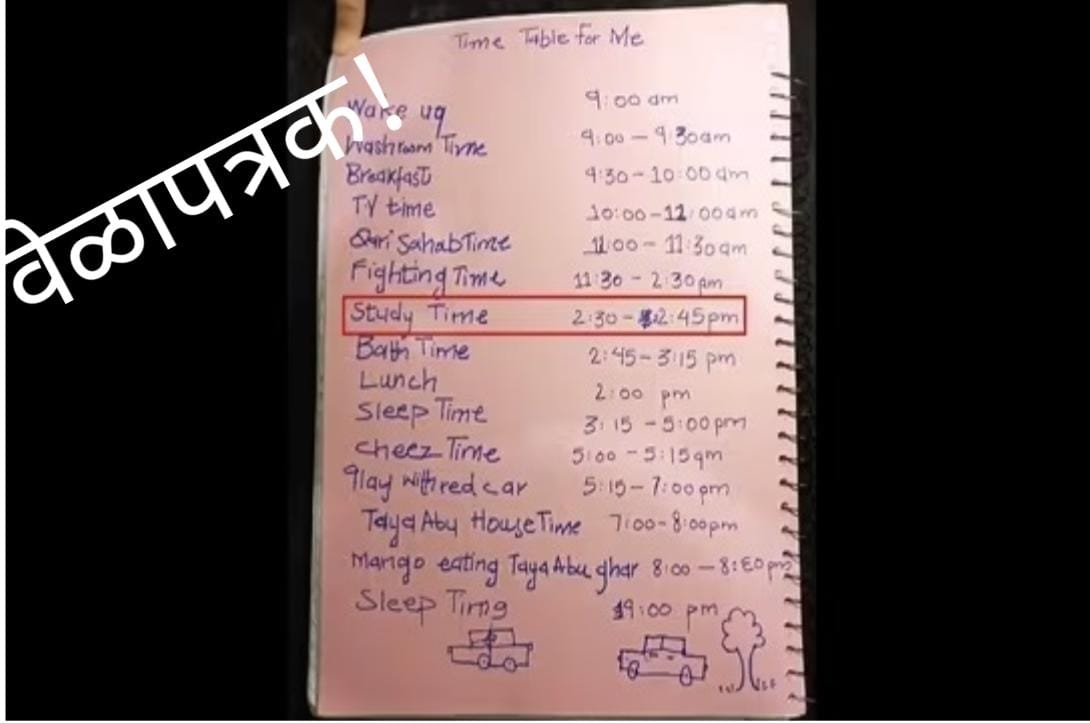 वेळापत्रक!
Time Table for Me
Wake uq 9:00 am
Washroom Time 9:00 - 9:30am
Breakfast 9:30 - 10:00 am
TV time 10:00 - 11:00am
Qari Sahab Time 11:00 - 11:30am
Fighting Time 11:30 - 2:30pm
Study Time 2:30 - 2:45pm
Bath Time 2:45 - 3:15 pm
Lunch 2:00 pm
Sleep Time 3:15 - 5:00pm
Cheez Time 5:00 - 5:15qm
qlay with red car 5:15 - 7:00pm
Taya Abu House Time 7:00 - 8:00pm
Mango eating Taya Abu ghar 8:00 - 8:30pm
Sleep Timg 9:00 pm